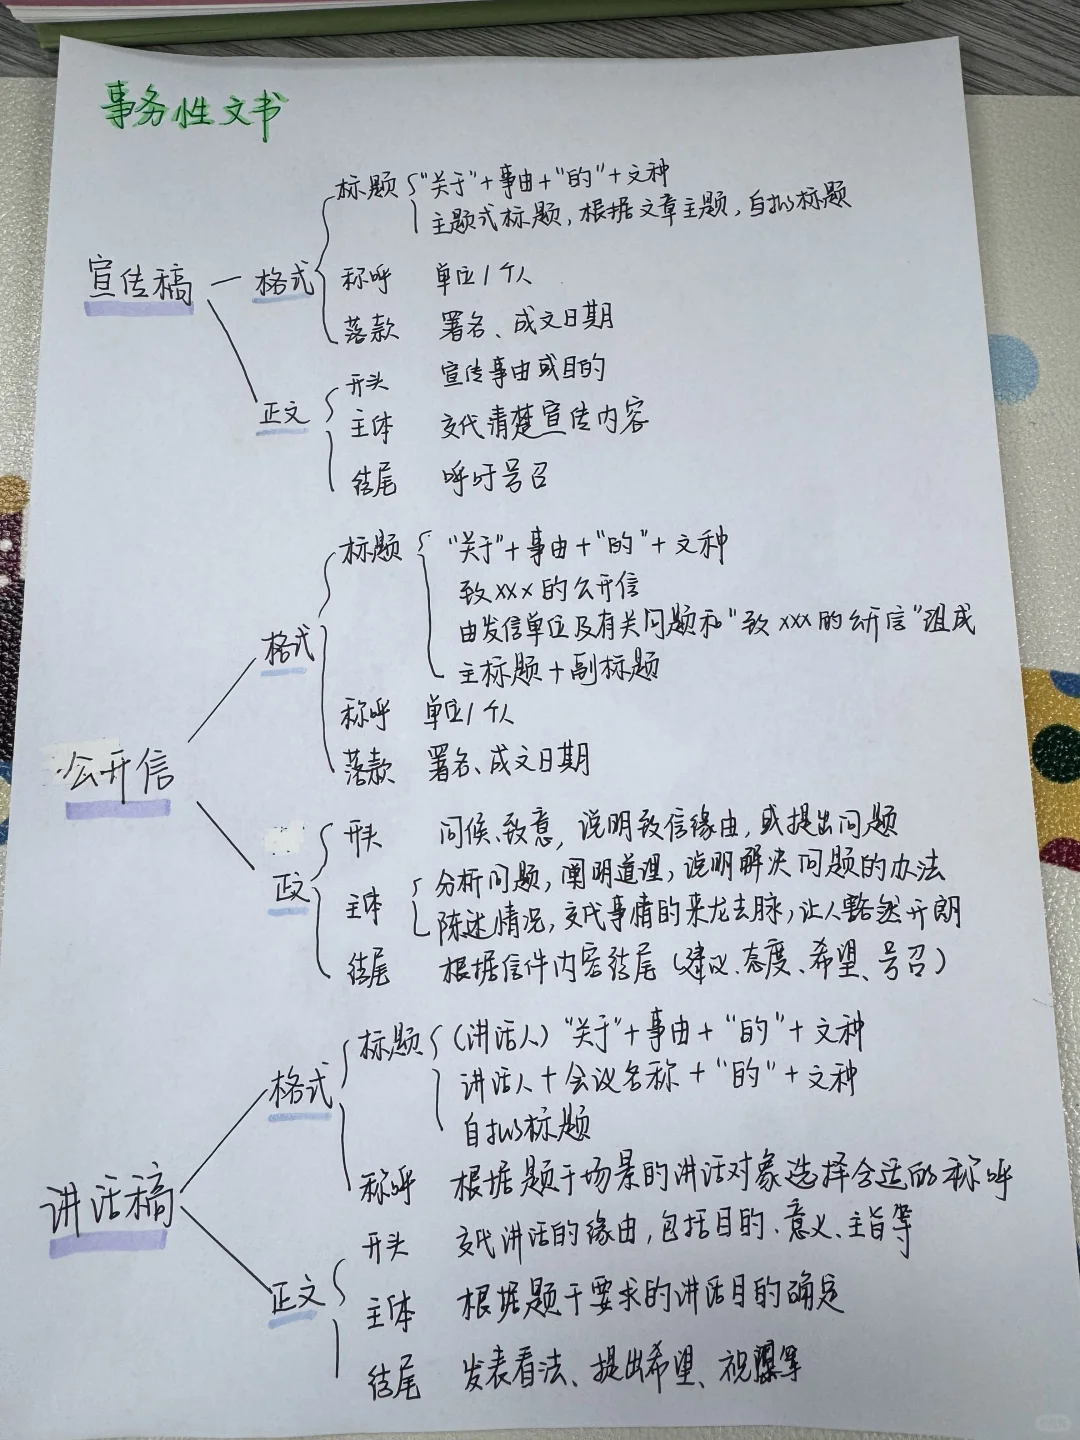 事务性文书
标题 "关于"+事由+"的"+文种
主题式标题，根据文章主题，自拟标题
宣传稿 格式 称呼 单位/个人
落款 署名、成文日期
开头 宣传事由或目的
正文 主体 交代清楚宣传内容
结尾 呼吁号召
标题 "关于"+事由+"的"+文种
致xxx的公开信
由发信单位及有关问题和"致xxx的公开信"组成
格式 主标题+副标题
称呼 单位/个人
公开信 落款 署名、成文日期
开头 问候、致意，说明致信缘由，或提出问题
正文 主体 分析问题，阐明道理，说明解决问题的办法
陈述情况，交代事情的来龙去脉，让人豁然开朗
结尾 根据信件内容结尾（建议、态度、希望、号召）
标题 (讲话人)"关于"+事由+"的"+文种
格式 讲话人+会议名称+"的"+文种
自拟标题
称呼 根据题干场景的讲话对象选择合适的称呼
讲话稿 开头 交代讲话的缘由，包括目的、意义、主旨等
正文 主体 根据题干要求的讲话目的确定
结尾 发表看法、提出希望、祝愿等